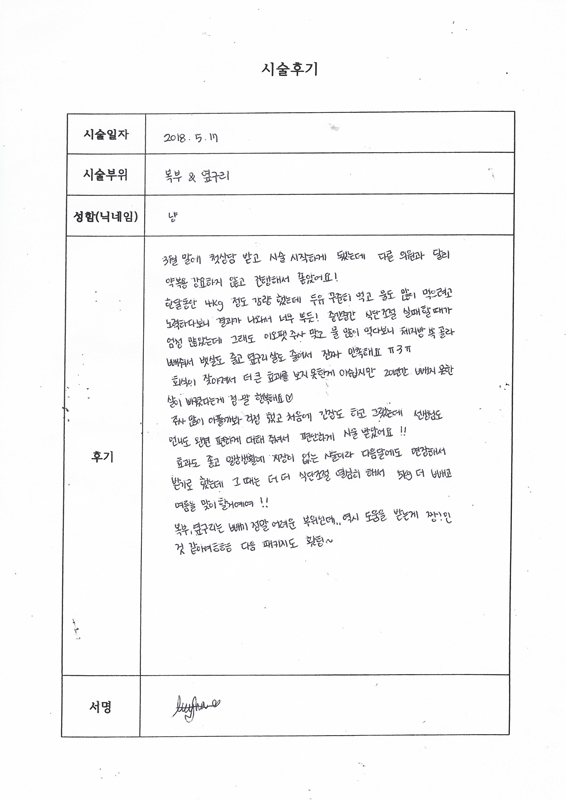 시술후기
시술일자 2018. 5. 17
시술부위 복부 & 옆구리
성함(닉네임) 냥
후기
3월 말에 첫상담 받고 시술 시작하게 됐는데 다른 의원과 달리
약복용 강요하지 않고 간단해서 좋았어요!
한달동안 4kg 정도 감량 했는데 두유 꾸준히 먹고 물도 많이 먹으려고
노력하다보니 결과가 나와서 너무 뿌듯! 중간중간 식단조절 실패할때가
엄청 많았는데 그래도 이오펫주사 맞고 물 많이 먹다보니 체지방 쏙 골라
빼줘서 뱃살도 줄고 옆구리살도 줄어서 진짜 만족해요 ㅠ3ㅠ
회식이 잦아져서 더 큰 효과를 보지 못한게 아쉽지만 20년간 빼지 못한
살이 빠졌다는게 정말 행복해요♡
주사 많이 아플까봐 걱정 했고 처음에 긴장도 타고 그랬는데 선생님도
언니도 완전 편하게 대해 주셔서 편안하게 시술 받았어요!!
효과도 좋고 일상생활에 지장이 없는 시술이라 다음달에도 연장해서
받기로 했는데 그 때는 더 더 식단조절 열심히 해서 5kg 더 빼고
여름을 맞이할거예여!!
복부, 옆구리는 빼기 정말 어려운 부위인데.. 역시 도움을 받는게 짱!인
것 같아여ㅎㅎㅎ 다음 패키지도 홧팅~
서명